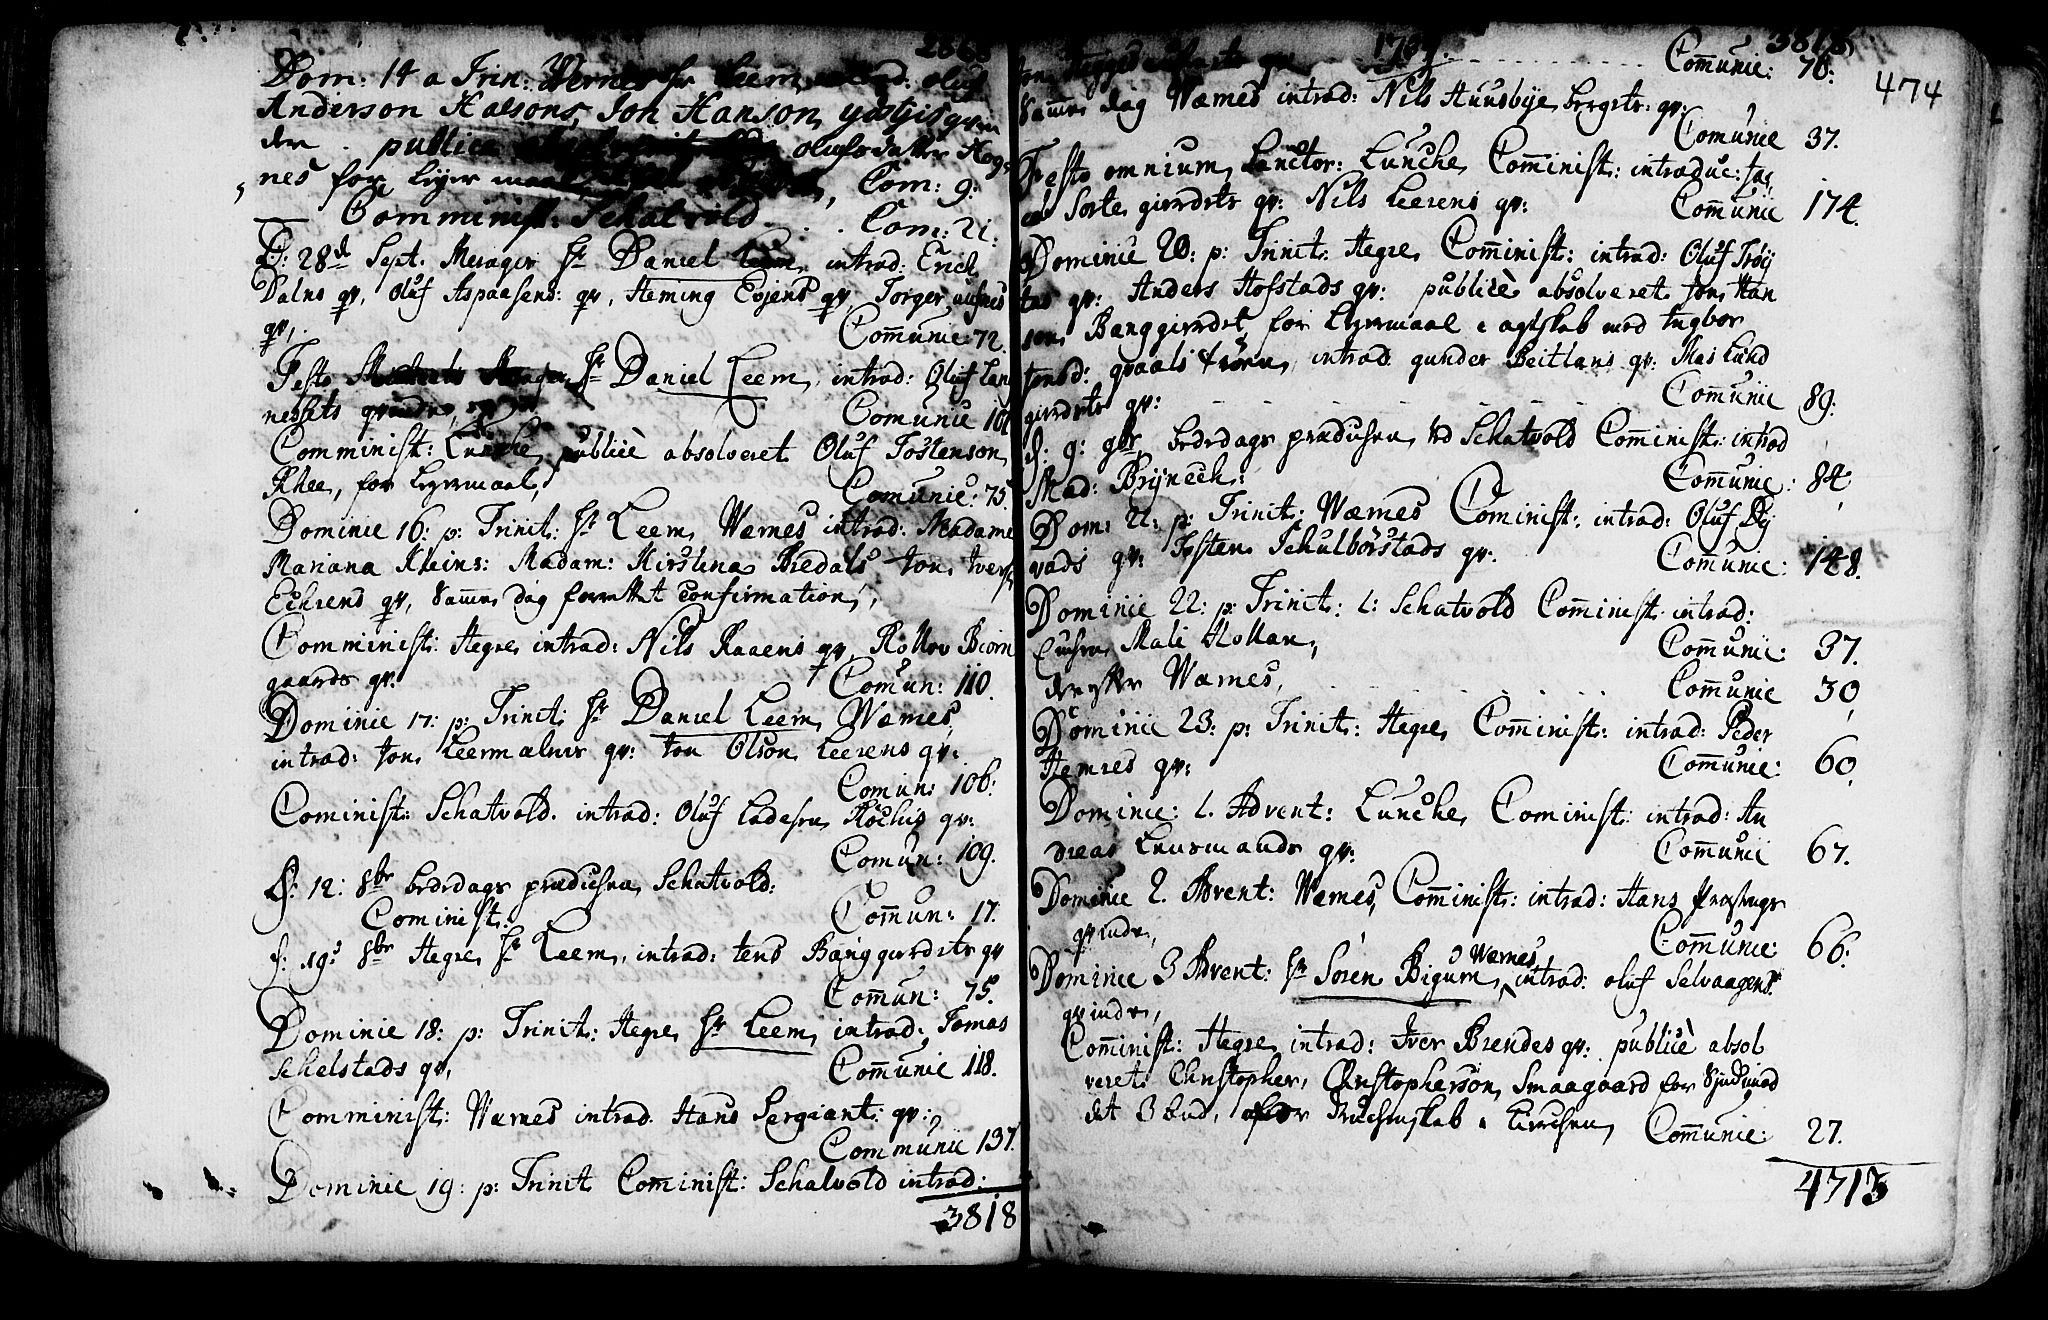 Dom: 14 a Trin: Wernes hr Leem, intrad: oluf
Anderson Halsons, Jon Hanson,
den . publice olufsdatter Hog-
nes for leyermaal, Com: 9:
Comminist: Schatvold . . Com: 21:
D: 28d Sept. Meragr hr Daniel Leem, intrad: Erich
Dalns qv, Oluf Aspaasens: qv, Heming Evjens qv, Torger aufnes
qv, Comunic: 72.
Festo hr Daniel Leem, intrad: Oluf Lan
neshts qvinde, Comunic 101
Comminist: Lunche, publicè absolveret Oluf Tostenson,
Rhee, for leyermaal, Comunic: 75
Dominic 16: p: Trinit: hr Leem, Wæmes intrad: Madame
Mariana Kleins: Madam: Kirstina Bredals Jon, Ivers
Echrens qv, Samme dag forrettet confirmation,
Comminist: Hegre, intrad: Nils Raaens qv, Biörn
gaards qv: Comun: 110.
Dominic 17: p: Trinit: hr Daniel Leem, Wæmes,
intrad: Jon, Leermælner qv: Jon Olson, Leerens qv:
Comun: 106:
Cominist: Schatvold. intrad: Oluf Ladesen, Röchis qv:
Comun: 109.
D: 12: 8br bededags prædichen, Schatvold:
Cominist: Comun: 17.
d: 19: 8br Hegre, hr Leem, intrad: Jens Banggierdets qv
Comun: 75.
Dominic 18: p: Trinit: Hegre, hr Leem, intrad: Tomas
Schelstads qv, Comunic 118.
Comminist: Wæmes intrad. Hans Sergiant: qv:
Communic 137.
Dominic 19: p: Trinit Cominist: Schatvold intrad:
3818
1709. 3818
Communic: 70: 474
Samme dag Wæmes intrad: Nils Huusbye, bergets: qv:
Comunic 37.
Festo omnium, Sanctor: Lunche, Cominist: introduc: Jac
ob Sorte, gierdets qv: Nils Leerens qv: Comunic 174.
Dominic 20: p: Trinit: Hegre, Cominist: intrad: Oluf Tröy
tes qv: Anders Hofstads qv: publicè absolveret Jon, Han
son, Banggierdet, for leyermaal e agtskab med Ingbor
Jonsd: intrad gunder Beitlans qv: Mas Lund
gierdets qv: Communic 89:
d: 9: 9br, bededags prædichen, ved Schatvold Cominist: intrad
Mad: Brÿnech: Communic: 84
Dom: 21: p: Trinit: Wæmes Cominist: intrad: Oluf Dy-
vads qv: Josten, Schulbörstads qv: Communic: 148.
Dominic 22: p: Trinit: l: Schatvold Cominist intrad:
Mali Hollan, Communic: 37.
Wæmes, Communic 30,
Dominic 23: p: Trinit: Hegre, Cominist: intrad: Peder
Hemres qv: Communic: 60
Dominic: 1. Advent: Lunche, Cominist: intrad: An
dreas Lensmands qv: Communic 67.
Dominic 2. Advent: Wæmes, Cominist: intrad: Hans
qvinde, Communic: 66:
Dominic 3 Advent: hr Sören Bigum, Wæmes, intrad: oluf Selvaagens
qvinde,
Cominist: Hegre, intrad: Iver Brendes qv: publicè absol
veret: Christopher, Christopherson, Smaagaard for Siud imod
det 3 bud, for Druchenskab i kirchen, Communic: 27.
4713